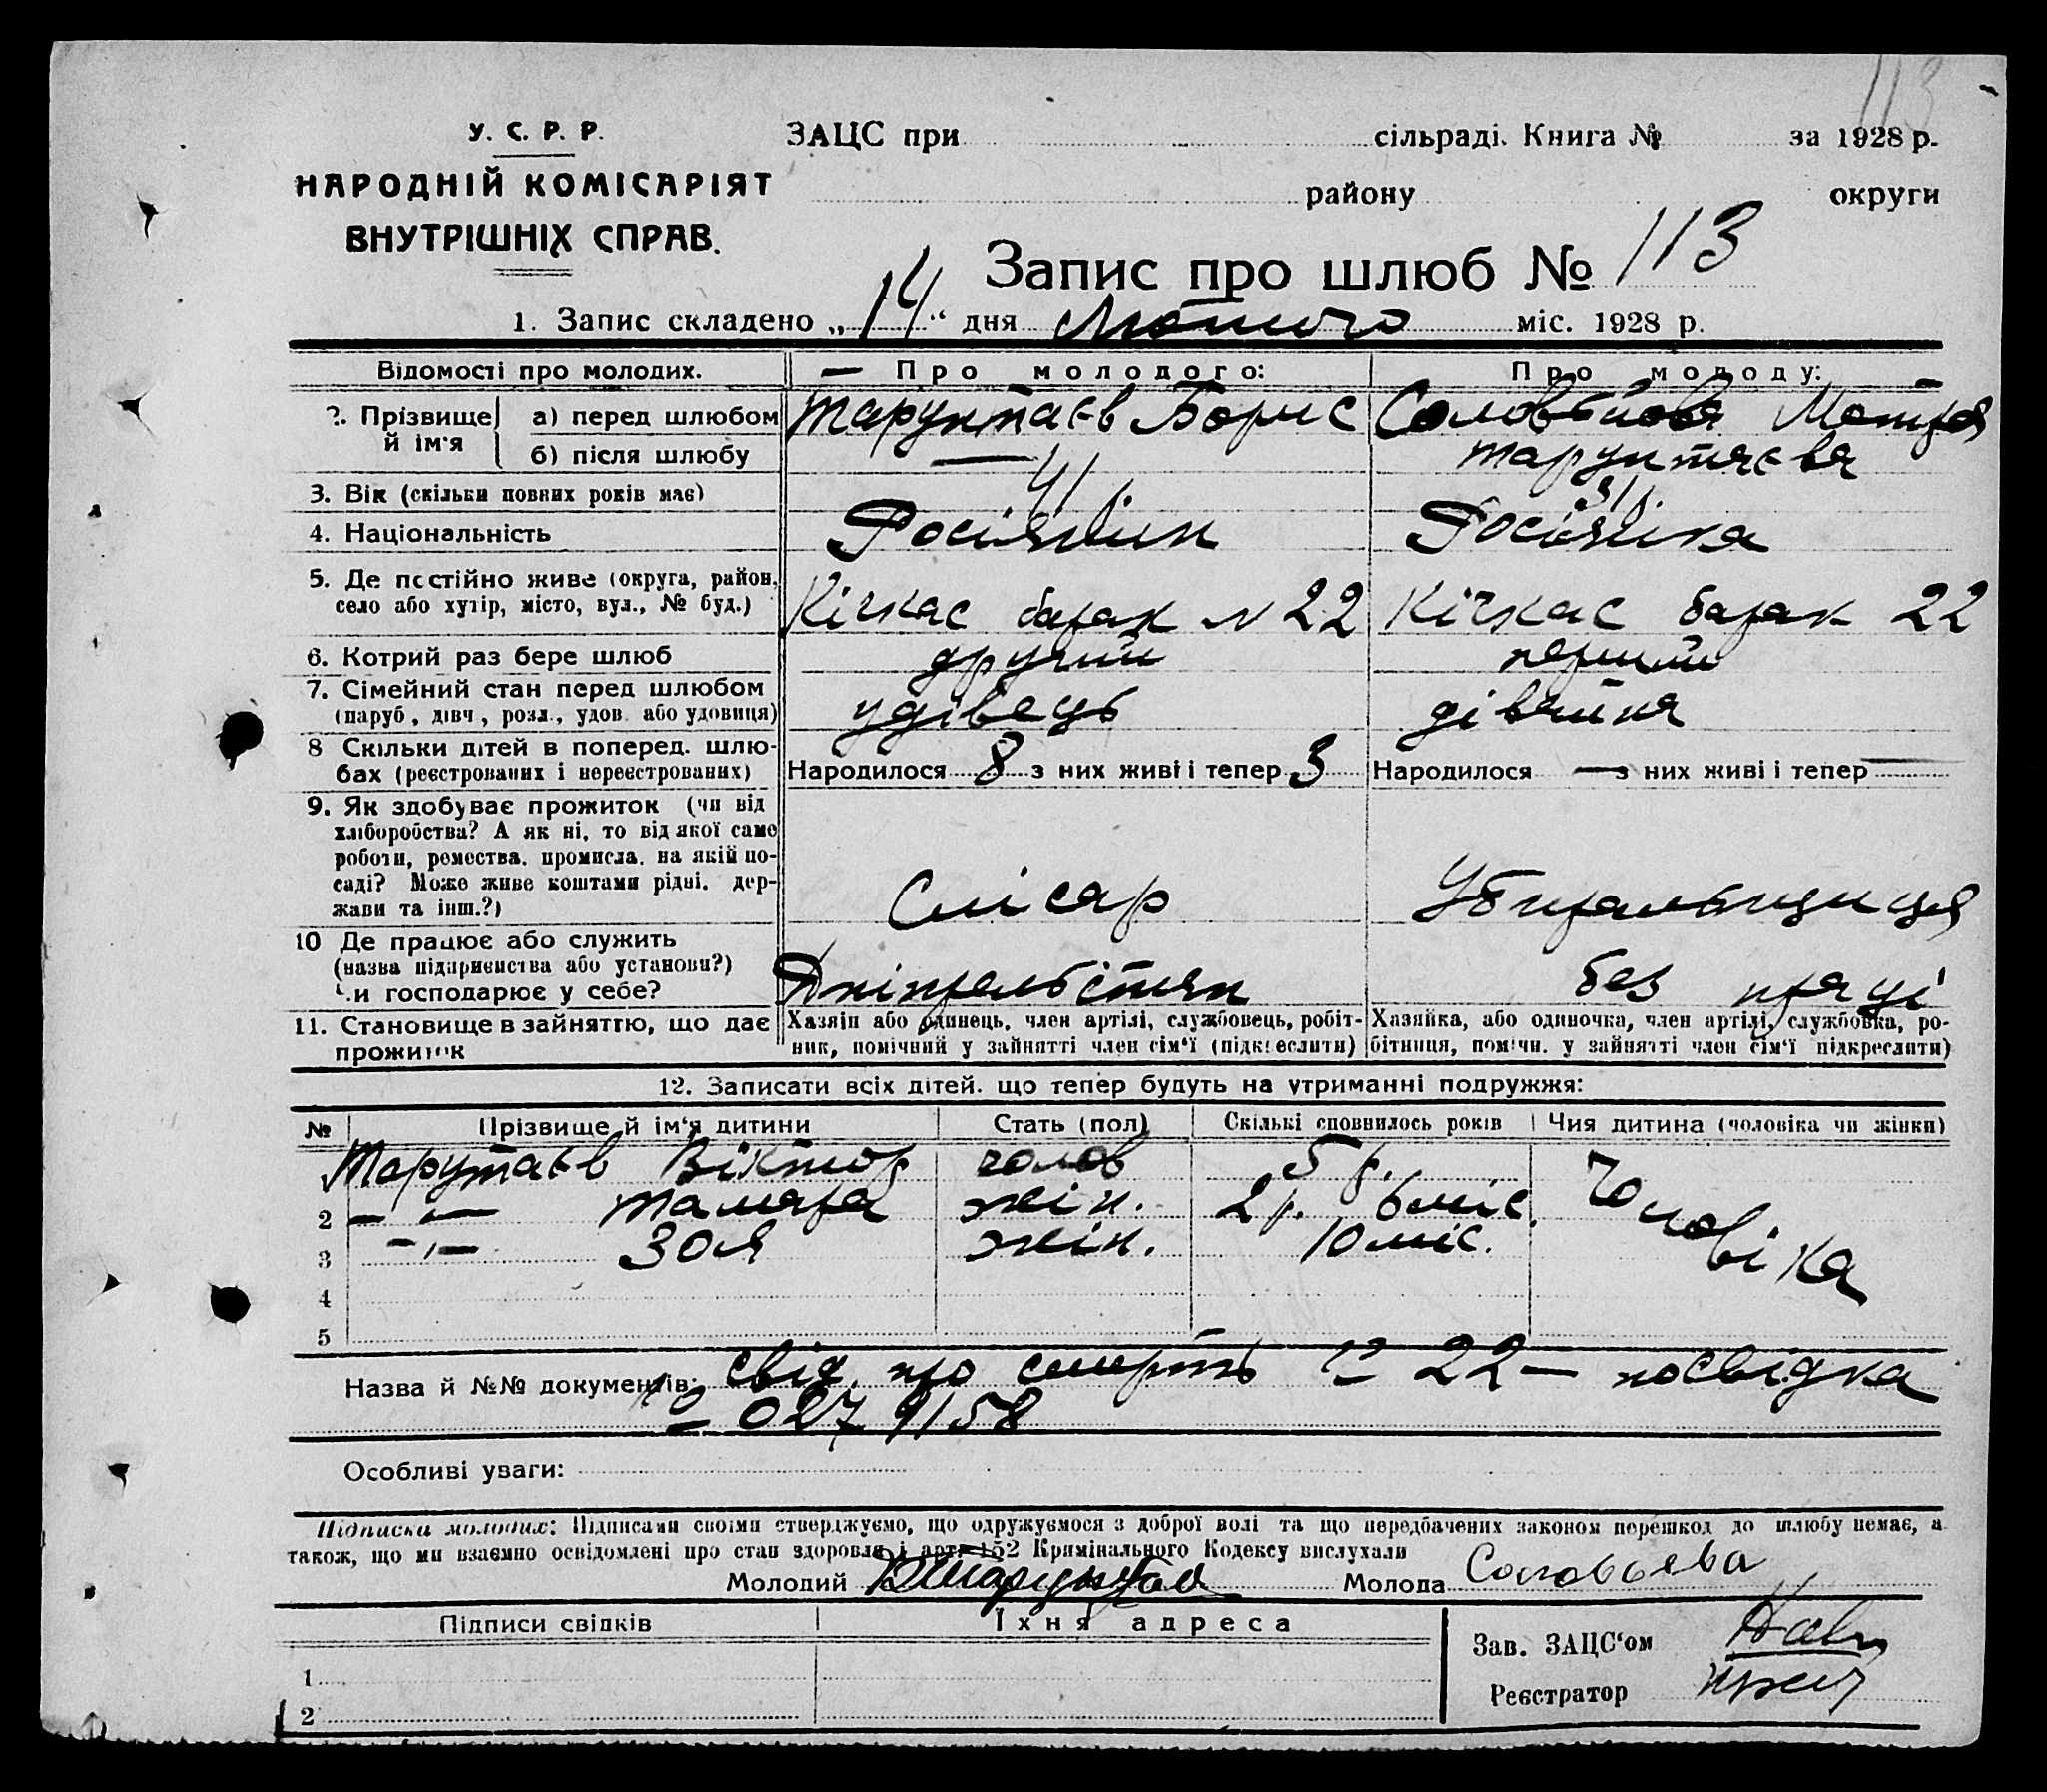 113
У. С. Р. Р.
НАРОДНІЙ КОМІСАРІЯТ
ВНУТРІШНІХ СПРАВ.
ЗАЦС при сільраді. Книга № за 1928 р.
району округи
Запис про шлюб № 113
1. Запис складено „14“ дня Лютого міс. 1928 р.
Відомості про молодих. Про молодого: Про молоду:
2. Прізвище й ім'я а) перед шлюбом Тарунтаєв Борис Соловйова Мотря
б) після шлюбу — Тарунтаєва
3. Вік (скільки повних років має) 41 31
4. Національність Росіянин Росіянка
5. Де постійно живе (округа, район, село або хутір, місто, вул., № буд.) Кічкас барак N 22 Кічкас барак 22
6. Котрий раз бере шлюб другий перший
7. Сімейний стан перед шлюбом (паруб, дівч, розл., удов. або удовиця) удівець дівчина
8 Скільки дітей в поперед. шлюбах (реєстрованих і нереєстрованих) Народилося 8 з них живі і тепер 3 Народилося — з них живі і тепер —
9. Як здобуває прожиток (чи від
хліборобства? А як ні, то від якої само
роботи, ремества, промисла, на якій по-
саді? Може живе коштами рідні, дер-
жави та інш.?) Слісар Убиральниця
10 Де працює або служить
(назва підприємства або установи?)
Чи господарює у себе? Дніпрельбстан без праці
11. Становище в зайняттю, що дає прожиток
Хазяїн або одинець, член артілі, службовець, робіт-
ник, помічний у зайнятті член сім'ї (підкреслити)
Хазяйка, або одиночка, член артілі, службовка, ро-
бітниця, помічн. у зайнятті член сім'ї підкреслити)
12. Записати всіх дітей. що тепер будуть на утриманні подружжя:
№ Прізвище й ім'я дитини Стать (пол) Скількі сповнилось років Чия дитина (чоловіка чи жінки)
1 Тарутаєв Віктор чолов 5 р. Чоловіка
2 —"— Тамара жін. 2 р. 6 міс.
3 —"— Зоя жін. 10 міс.
4
5
Назва й №№ документів: свід. про смерть № 22 — посвідка
№ 027 9/58
Особливі уваги:
Підписка молодих: Підписами своїми стверджуємо, що одружуємося з доброї волі та що передбачених законом перешкод до шлюбу немає, а
також, що ми взаємно освідомлені про стан здоровля і арт. 152 Кримінального Кодексу вислухали
Молодий Молода Соловьева
Підписи свідків Їхня адреса
Зав. ЗАЦС'ом
Реєстратор
1
2